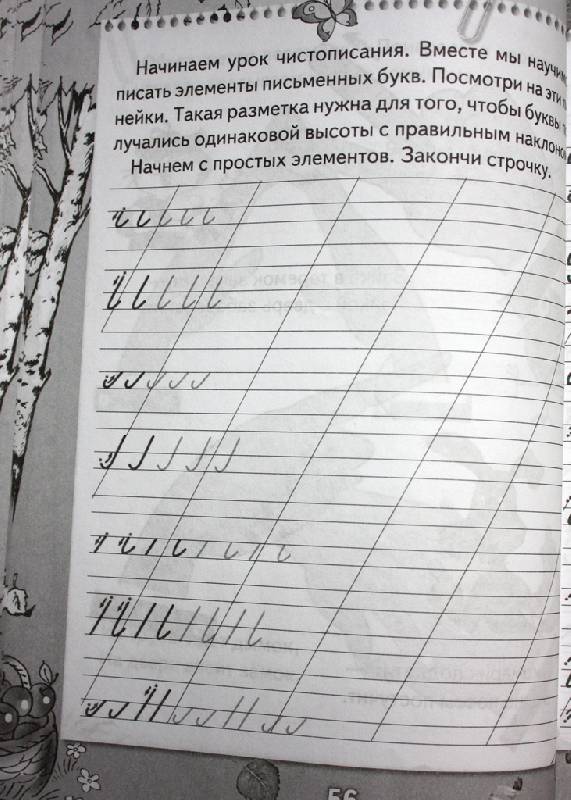 Начинаем урок чистописания. Вместе мы
писать элементы письменных букв. Посмотри на эти
нейки. Такая разметка нужна для того, чтобы буквы
лучались одинаковой высоты с правильным
Начнем с простых элементов. Закончи строчку.
56